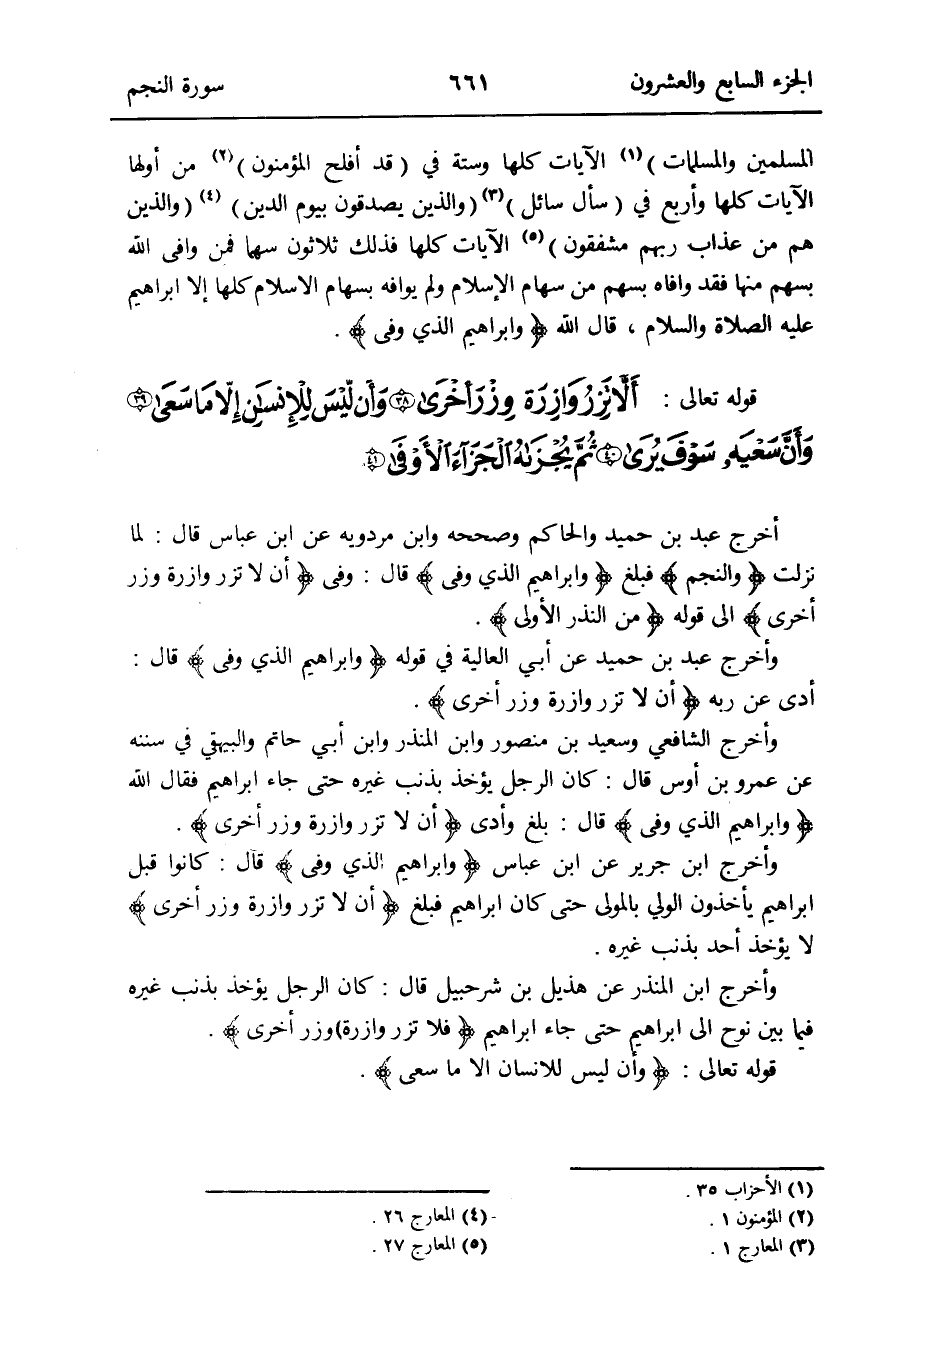 الجزء السابع والعشرون ٦٦١ سورة النجم
المسلمين والمسلمات )(١) الآيات كلها وستة في ( قد أفلح المؤمنون )(٢) من أولها
الآيات كلها وأربع في ( سأل سائل )(٣) ( والذين يصدقون بيوم الدين ) (٤) ( والذين
هم من عذاب ربهم مشفقون )(٥) الآيات كلها فذلك ثلاثون سهما فمن وافى الله
بسهم منها فقد وافاه بسهم من سهام الإسلام ولم يوافه بسهام الاسلام كلها إلا ابراهيم
عليه الصلاة والسلام ، قال الله ﴿ وابراهيم الذي وفى ﴾ .
قوله تعالى : أَلَّا تَزِرُ وَازِرَةٌ وِزْرَ أُخْرَىٰ ٣٨ وَأَن لَّيْسَ لِلْإِنسَٰنِ إِلَّا مَا سَعَىٰ ٣٩
وَأَنَّ سَعْيَهُۥ سَوْفَ يُرَىٰ ٤٠ ثُمَّ يُجْزَىٰهُ ٱلْجَزَآءَ ٱلْأَوْفَىٰ ٤١
أخرج عبد بن حميد والحاكم وصححه وابن مردويه عن ابن عباس قال : لما
نزلت ﴿ والنجم ﴾ فبلغ ﴿ وابراهيم الذي وفى ﴾ قال : وفى ﴿ أن لا تزر وازرة وزر
أخرى ﴾ الى قوله ﴿ من النذر الأولى ﴾ .
وأخرج عبد بن حميد عن أبي العالية في قوله ﴿ وابراهيم الذي وفى ﴾ قال :
أدى عن ربه ﴿ أن لا تزر وازرة وزر أخرى ﴾ .
وأخرج الشافعي وسعيد بن منصور وابن المنذر وابن أبي حاتم والبيهقي في سننه
عن عمرو بن أوس قال : كان الرجل يؤخذ بذنب غيره حتى جاء ابراهيم فقال الله
﴿ وابراهيم الذي وفى ﴾ قال : بلغ وأدى ﴿ أن لا تزر وازرة وزر أخرى ﴾ .
وأخرج ابن جرير عن ابن عباس ﴿ وابراهيم الذي وفى ﴾ قال : كانوا قبل
ابراهيم يأخذون الولي بالمولى حتى كان ابراهيم فبلغ ﴿ أن لا تزر وازرة وزر أخرى ﴾
لا يؤخذ أحد بذنب غيره .
وأخرج ابن المنذر عن هذيل بن شرحبيل قال : كان الرجل يؤخذ بذنب غيره
فيما بين نوح الى ابراهيم حتى جاء ابراهيم ﴿ فلا تزر وازرة)وزر أخرى ﴾ .
قوله تعالى : ﴿ وأن ليس للانسان الا ما سعى ﴾ .
(١) الأحزاب ٣٥ .
(٢) المؤمنون ١ .
(٣) المعارج ١ .
(٤) المعارج ٢٦ .
(٥) المعارج ٢٧ .